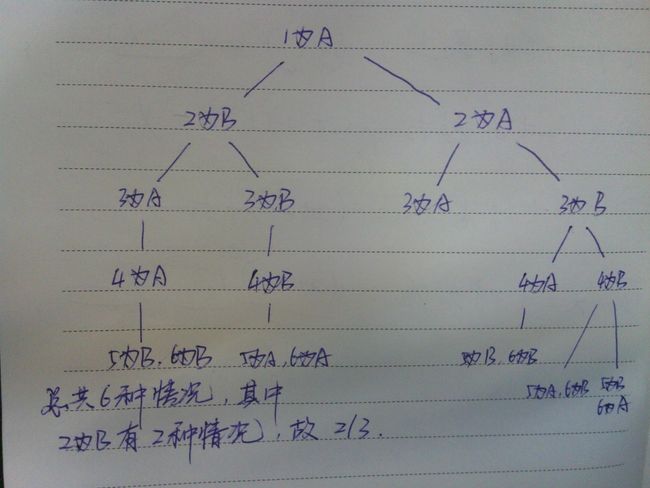 1为A
2为B 2为A
3为A 3为B 3为A 3为B
4为A 4为B 4为A 4为B
5为B,6为B 5为A,6为A 5为B,6为B 5为A,6为B 5为B
6为A
总共6种情况,其中
2为B有2种情况,故2/3.